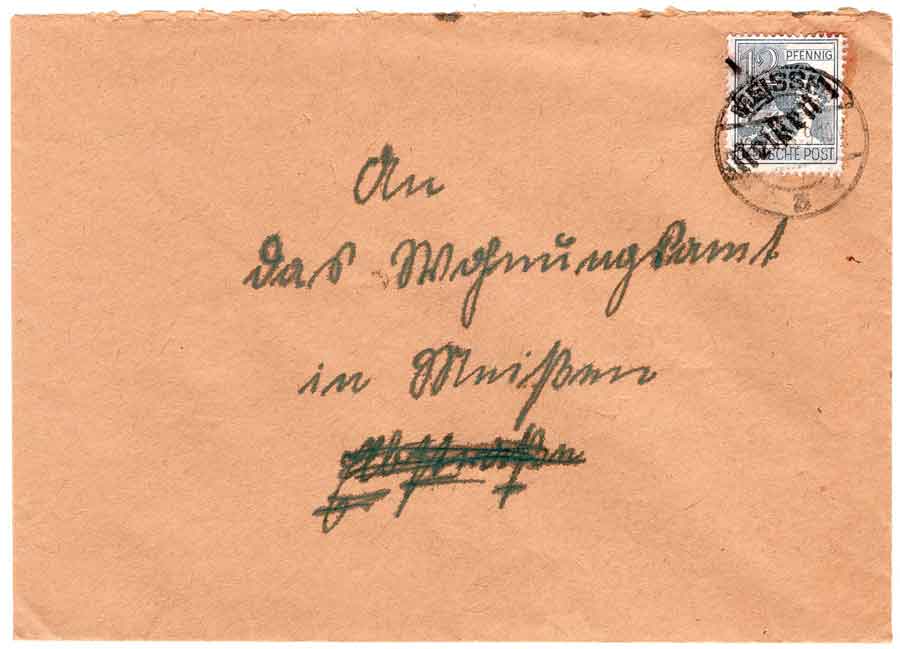 12 PFENNIG
MEISSEN
Meißen
DEUTSCHE POST
An
das Wohnungsamt
in Meißen